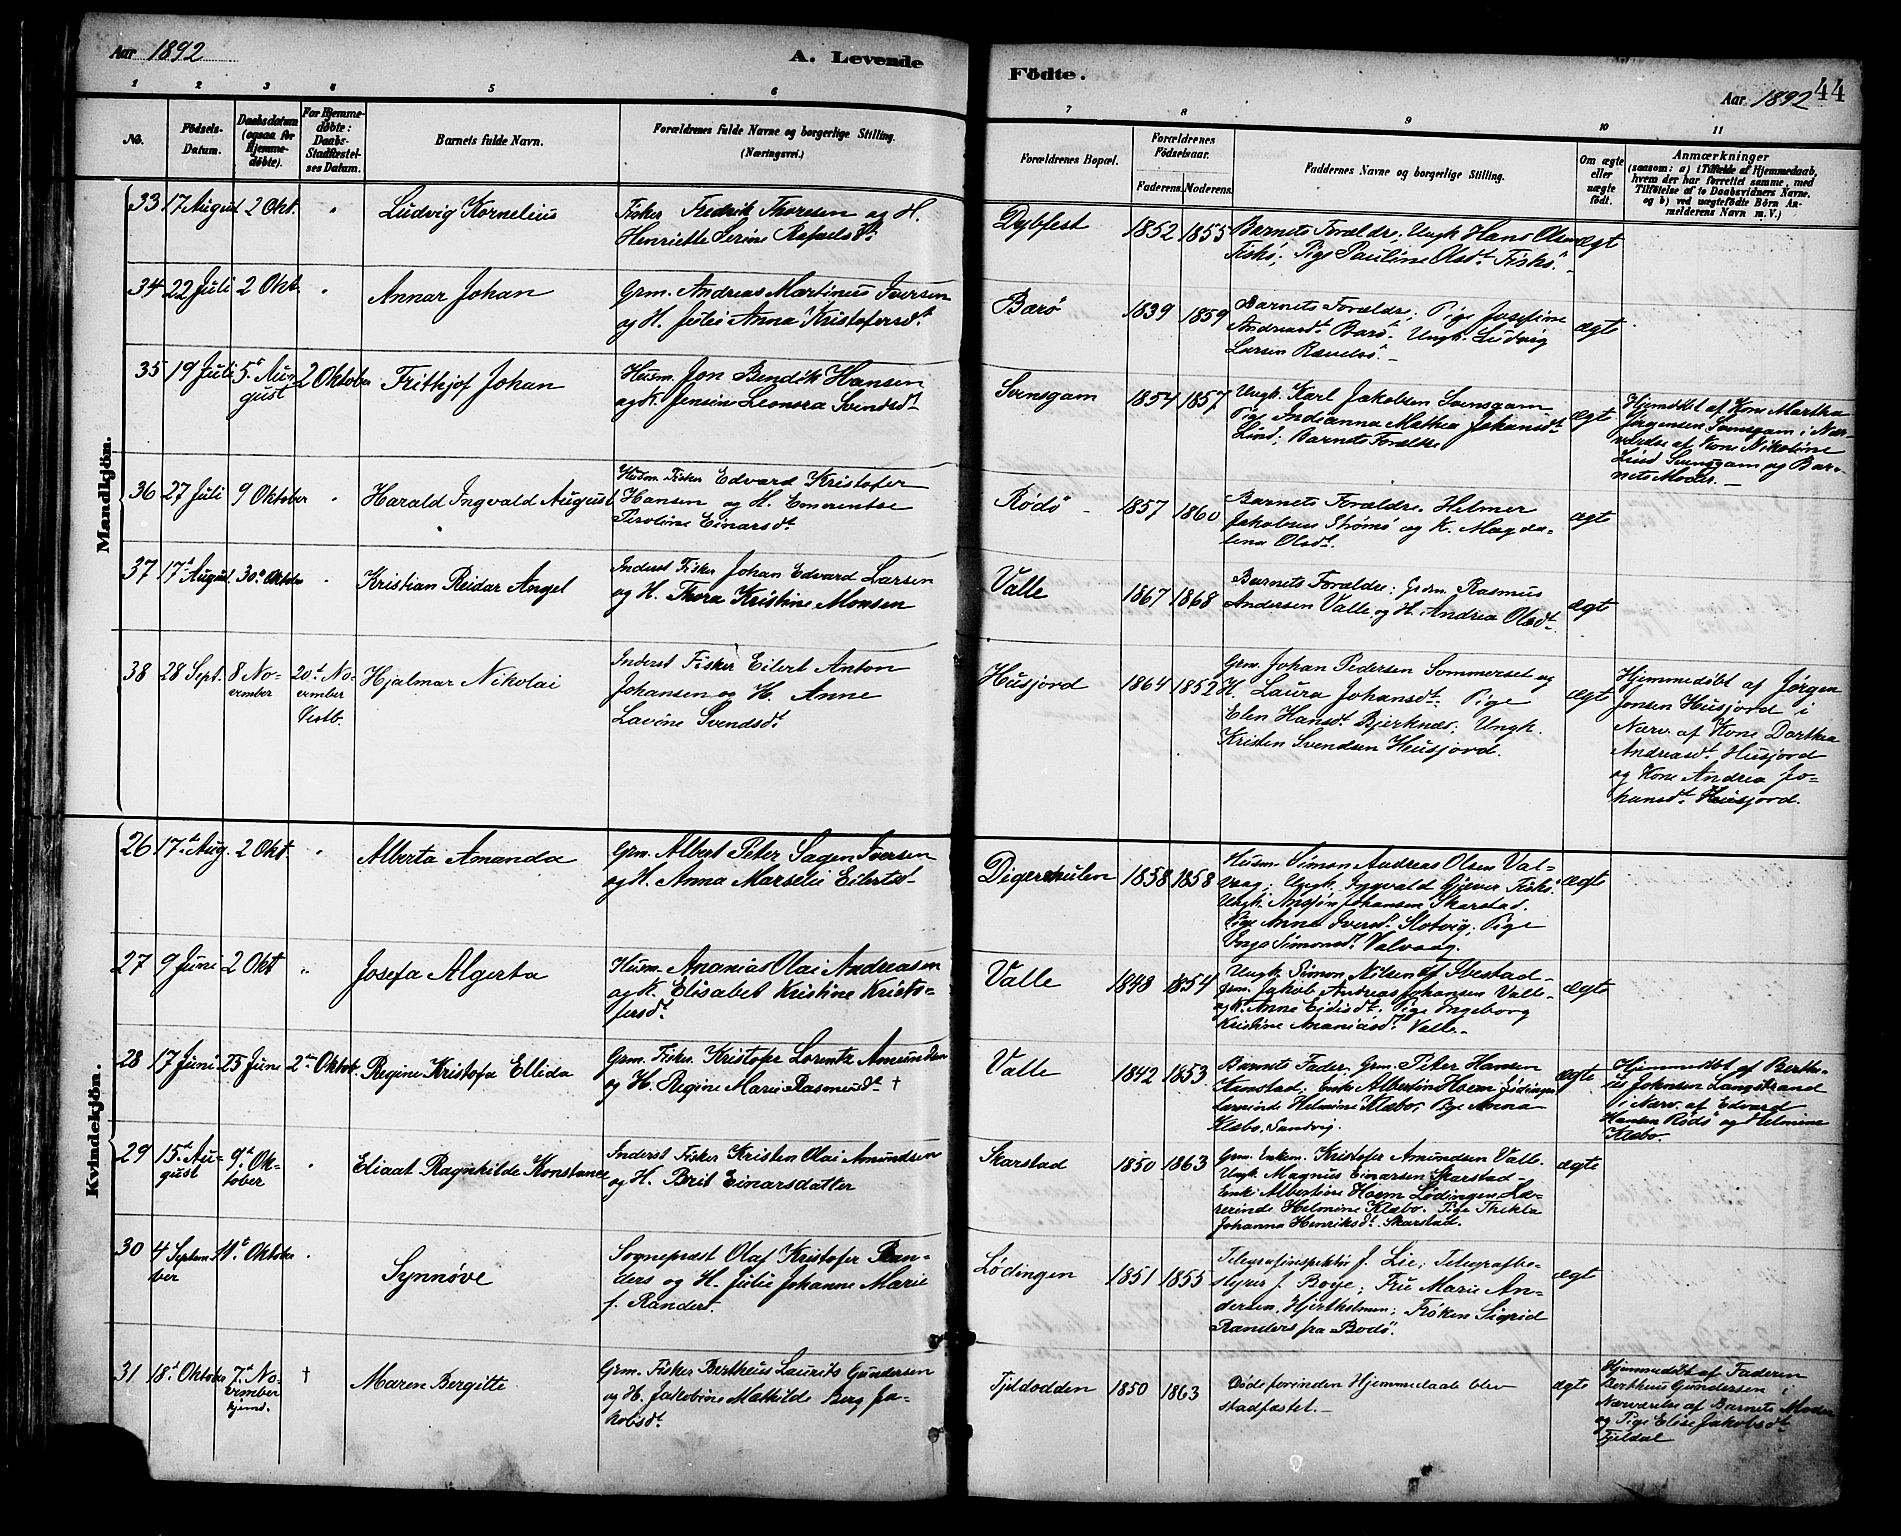 Aar 1892
A. Levende
Födte.
Aar 1892
44
1 2 3 4 5 6 7 8 9 10 11
No.
Födsels-
Datum.
Daabsdatum
(ogsaa for
Hjemme-
døbte).
For Hjemme-
døbte:
Daabs-
Stadfæstel-
ses Datum.
Barnets fulde Navn.
Forældrenes fulde Navne og borgerlige Stilling.
(Næringsvei.)
Forældrenes Bopæl.
Forældrenes
Födselsaar.
Faderens. Moderens.
Faddernes Navne og borgerlige Stilling.
Om ægte
eller
uægte
født.
Anmærkninger
(saasom: a) i Tilfælde af Hjemmedaab,
hvem der har forrettet samme, med
Tilföielse af to Daabsvidners Navne,
og b) ved uægtefödte Börn An-
melderens Navn m. V.)
Mandkjön.
33 17 August 2 Okt. " Ludvig Kornelius
Fisker Fredrik Thoresen og H.
Henriette Serine Rafaelsdt.
Dybfest 1852 1855
Barnets Forældre, Ungk. Hans Olsen
Fiskö; Pige Pauline Olsdt. Fiskö. -
ægt
34 22 Juli 2 Okt. " Annar Johan
Grm. Andreas Martinus Iversen
og H. Julie Anna Kristofersdt.
Barø 1839 1859
Barnets Forældre; Pige Josefine
Andreasdt. Barö. Ungk. Ludvig
Larsen
ægte
35 19 Juli 5te August 2 Oktober Frithjof Johan
Husm. Jon Bendik Hansen
og K. Jensin Leonora Svendsdt.
Svensgam 1854 1857
Ungk. Karl Jakobsen Svensgam
Pige Indianna Mathea Johansdt.
Lind; Barnets Forældre
ægte
Hjemdøbt af Kone Martha
Jørgensen Svensgam i Nær-
værelse af Kone Nikoline
Lind Svensgam og Bar-
nets Moder. -
36 27 Juli 9 Oktober " Harald Ingvald August
Husm. Fisker Edvard Kristofer
Hansen og H. Emerentse
Peroline Einarsdt.
Rødø - 1857 1860
Barnets Forældre. Helmer
Jakobsen Strømö og K. Magda-
lena Olsdt.
ægte
37 17de August. 30te Oktober " Kristian Reidar Angel
Inderst Fisker Johan Edvard Larsen
og H. Thora Kristine Monsen
Valle 1867 1868
Barnets Forældre; Grdm. Rasmus
Andersen Valle og H. Andrea Olsdt.
ægte
38 28 Sept. 8 November 20de November Vestb. Hjalmar Nikolai
Inderst Fisker Eilert Anton
Johansen og H. Anne
Lavine Svendsdt.
Husjord 1864 1852
Grm. Johan Pedersen Sommerset og
H. Laura Johansdt. Pige
Elen Hansdt. Bjerknæs; Ungk.
Kristen Svendsen Husjord.
ægt
Hjemmedöbt af Jørgen
Jensen Husjord i
Nærv. af Kone Dorthea
Andreasdt. Husjord
og Kone Andrea Jo-
hansdt. Husjord.
Kvindekjön.
26 17de Aug. 2 Okt. " Alberta Amanda
Grm. Albert Peter Sagen Iversen
og H. Anna Marselie Eilertsdt.
Digermulen 1858 1858
Husm. Simon Andreas Olsen Val-
vaag; Ungk. Ingvald Gjæver Fiskö
Ungk. Johansen Skarstad.
Pige Anna Iversdt. Slotvig; Pige
Inga Simonsdt. Valvaag.
ægte
27 9 Juni 2 Okt " Josefa Algerta
Husm. Ananias Olai Andreasen
og K. Elisabet Kristine Kristo-
fersdt.
Valle 1848 1854
Ungk. Simon Nilsen af Ibestad -
Jakob Andreas Johansen Valle -
og K. Anne Ejdisdt. Pige Ingeborg
Kristine Ananiasdt. Valle. -
ægte
28 17 Juni 25 Juni 2den Oktob. Regine Kristofa Ellida
Grm. Fisker Kristofer Lorentz Amundsen
og H. Regine Marie Rasmusdt. †
Valle 1842 1853
Barnets Fader. Grm. Peter Hansen
Kanstad; Enke Albertin Hoem Lødingen
Lærerinde Helmine Klæbo; Pige Anna
Klæbo. Sandvig.
ægte
Hjemmedøbt af Berthe-
us Johnsen Langstrand
i Nærv. af Edvard
Hansen Rödö og Helmine
Klæbo.
29 15de August 9de Oktober " Eliaat Ragnhilde Konstance
Inderst Fisker Kristen Olai Amundsen
og H. Berit Einarsdatter
Skarstad 1850 1863
Grm. Enkm. Kristofer Amundsen Valle.
Ungk. Magnus Einarsen Skarstad -
Enke Albertine Hoem Lødingen Læ-
rerinde Helmine Klæbo. Pige Thekla
Johanna Henriksdt. Skarstad.
ægte
30 4 September 11te Oktober " Synnøve
Sogneprest Olaf Kristofer Ran-
ders og H. Julie Johanne Marie
f. Randers.
Lødingen 1851 1855
Telegrafinspektör J. Lie; Telegrafbe-
styrer J. Boye; Fru Marie An-
dersen, Hjertholmen; Frøken Sigrid
Randers fra Bodö.
ægt
31 18de Oktober 7de November hjemd. † Maren Bergitte
Grm. Fisker Bertheus Laurits Gundersen
og H. Jakobine Mathilde Berg Ja-
kobsdt.
Tjeldodden 1850 1863
Døde forinden Hjemmedaab blev
stadfæstet. -
ægte
Hjemmedöbt af Faderen
Bertheus Gundersen i
Nærværelse af Barnets Moder
og Pige Elise Jakobsdt.
Fjeldal